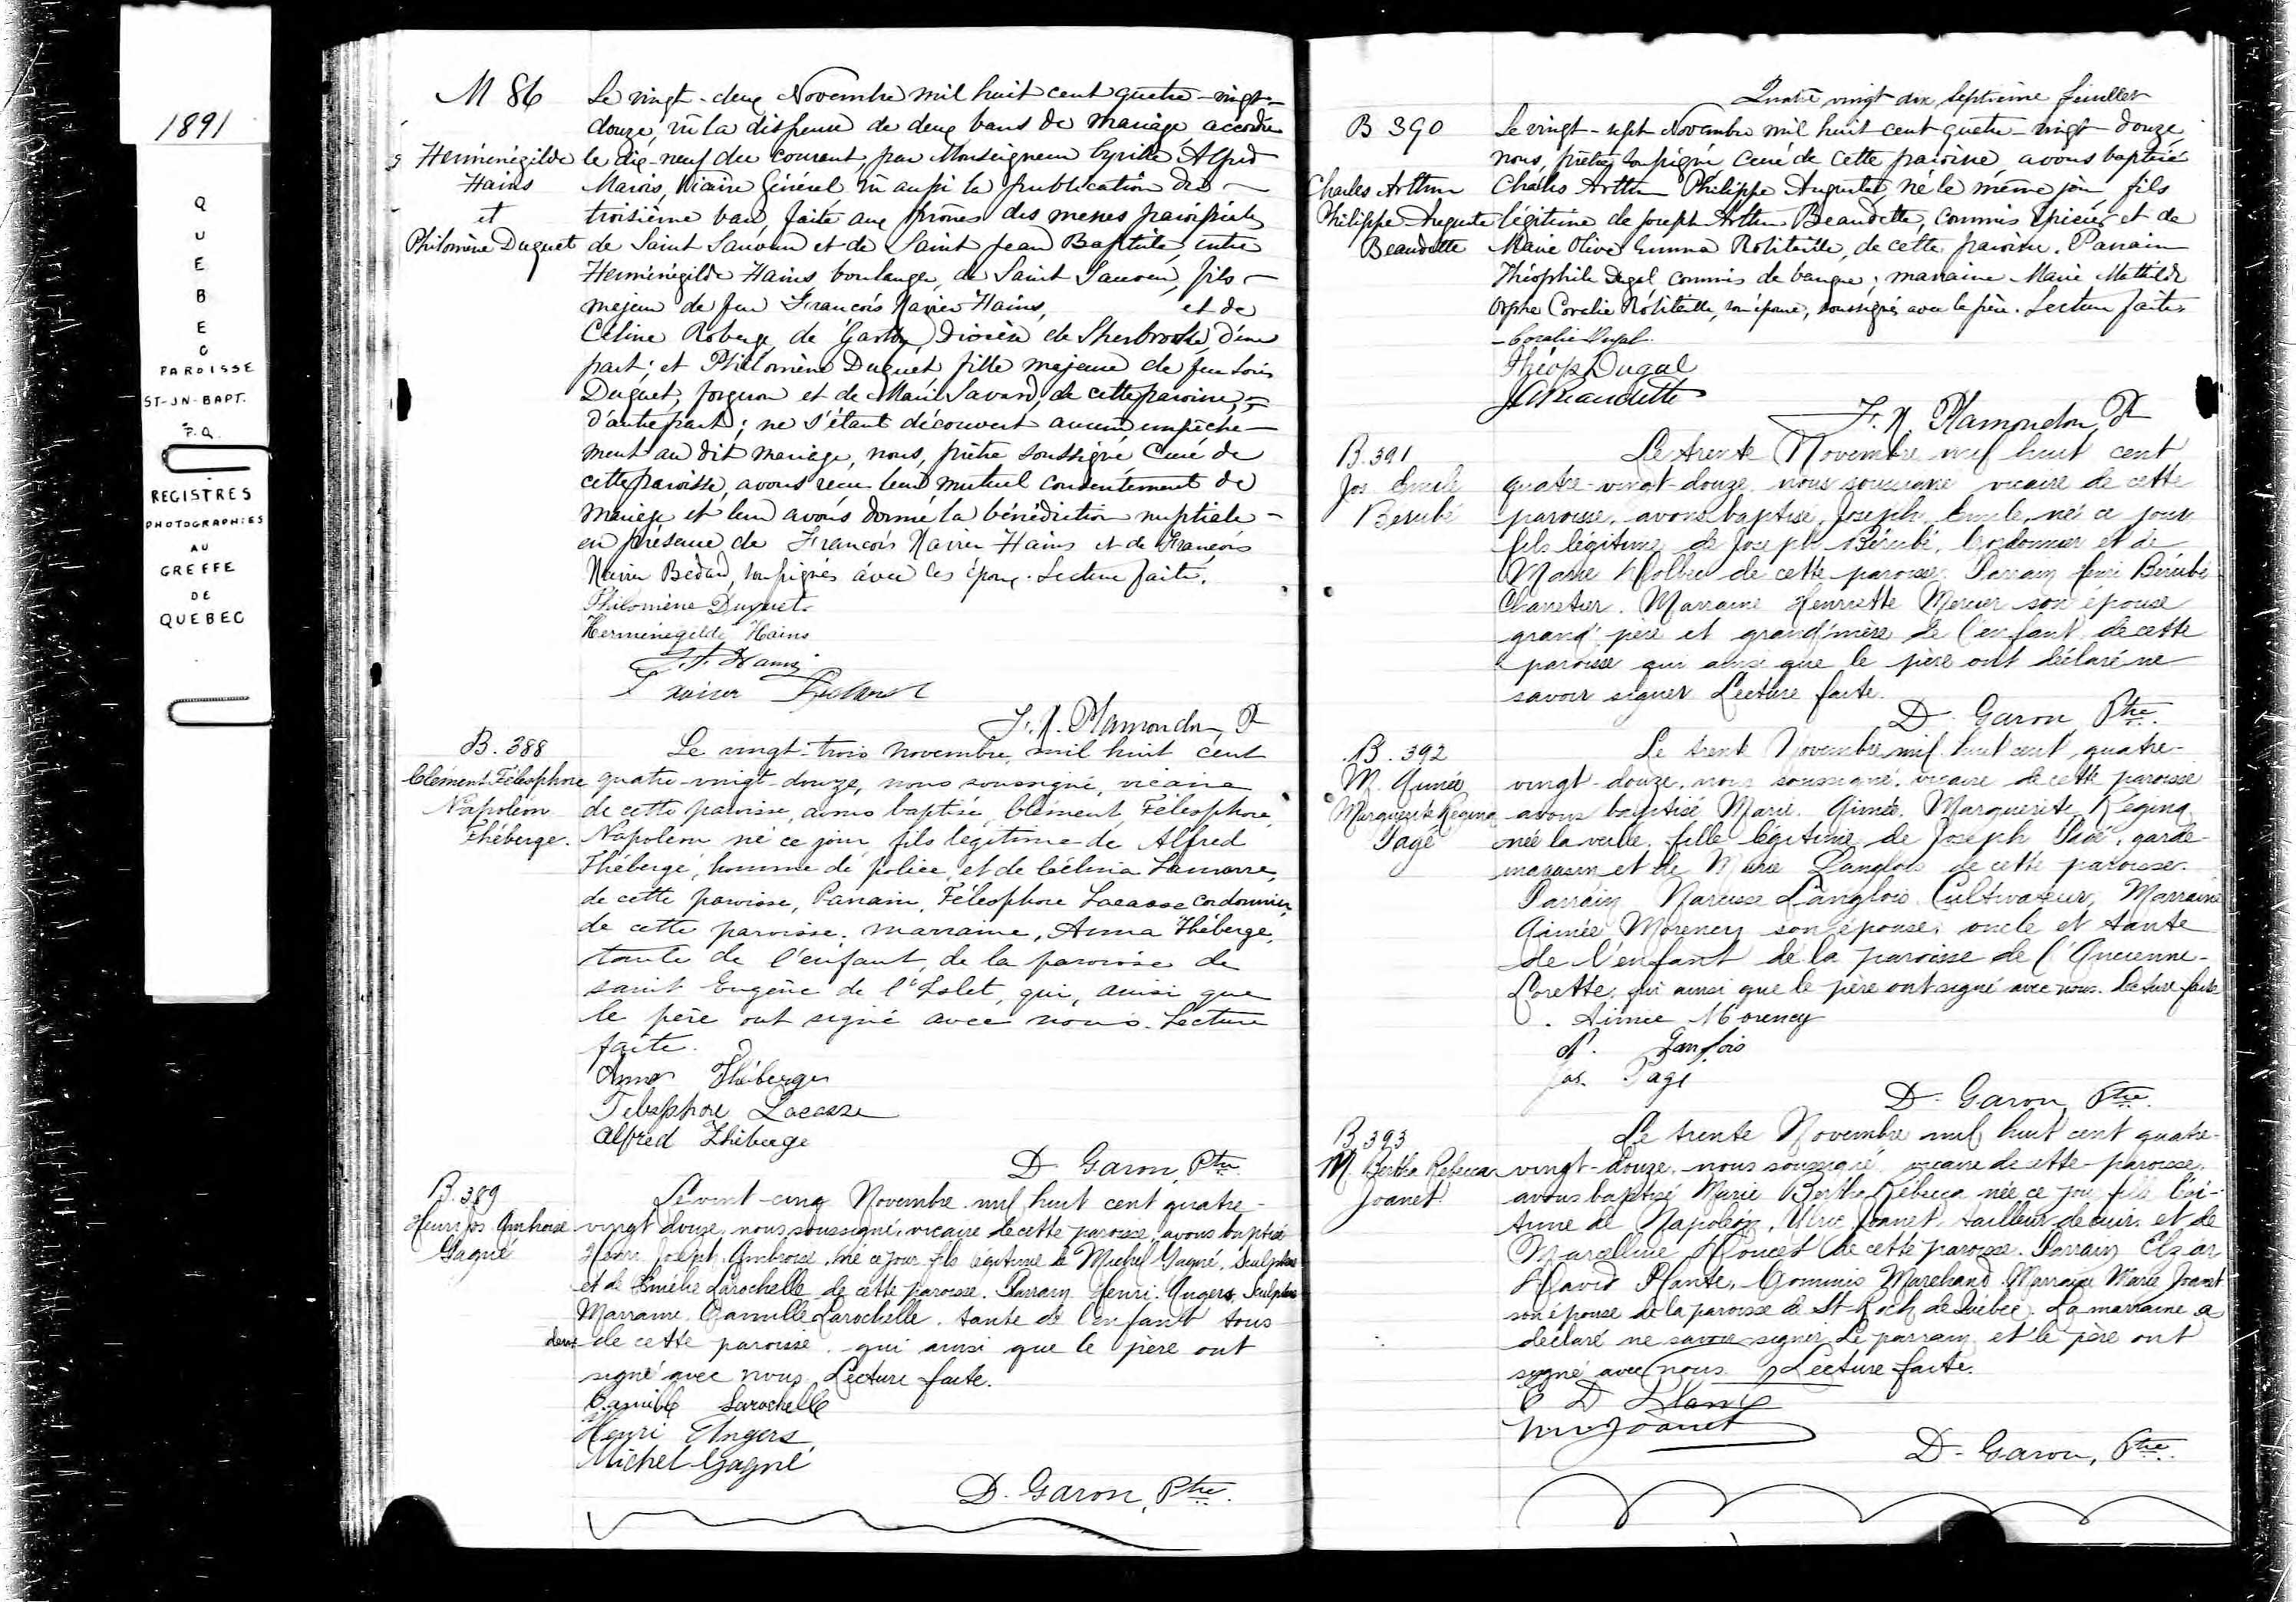 1891
QUEBEC
PAROISSE
ST-JN-BAPT.
P.Q.
REGISTRES
PHOTOGRAPHIES
AU
GREFFE
DE
QUEBEC
M 86
Herménégilde
Hains
et
Philomène Duquet
Le vingt-deux Novembre mil huit cent quatre-vingt-
douze, vu la dispense de deux bans de mariage accordée
le dix-neuf du courant, par Monseigneur Cyrille Alfred
Marois, Vicaire Général vu aussi la publication du
troisième ban faite aux prônes des messes paroissiales
de Saint Sauveur et de Saint Jean Baptiste, entre
Herménégilde Hains boulanger, de Saint Sauveur, fils
majeur de feu François Xavier Hains, et de
Céline Roberge, de Garthby, Diocèse de Sherbrooke, d'une
part; et Philomène Duquet fille majeure de feu Louis
Duquet, forgeron et de Marie Savard, de cette paroisse,
d'autre part; ne s'étant découvert aucun empêche-
ment au dit mariage, nous, prêtre soussigné Curé de
cette paroisse, avons reçu leur mutuel consentement de
mariage et leur avons donné la bénédiction nuptiale
en présence de François Xavier Hains et de François
Xavier Bédard, soussignés avec les époux. Lecture faite.
Philomène Duquet
Herménégilde Hains
F. X. Plamondon, Ptre
B. 388
Clément Télesphore
Napoléon
Théberge.
Le vingt-trois novembre, mil huit cent
quatre-vingt-douze, nous soussigné, vicaire
de cette paroisse, avons baptisé, Clément, Télesphore,
Napoléon né ce jour, fils légitime de Alfred
Théberge, homme de police, et de Célina Lamarre,
de cette paroisse, Parrain, Télesphore Lacasse cordonnier,
de cette paroisse; marraine, Anna Théberge,
tante de l'enfant, de la paroisse de
saint Eugène de l'Islet, qui, ainsi que
le père ont signé avec nous. Lecture
faite.
Anna Théberge
Telesphore Lacasse
Alfred Théberge
D. Garon, Ptre
B. 389
Henri Jos Ambroise
Gagné
Le vint-cinq Novembre mil huit cent quatre-
vingt douze, nous soussigné, vicaire de cette paroisse, avons baptisé
Henri Joseph Ambroise, né ce jour fils légitime de Michel Gagné, Sculpteur
et de Emélie Larochelle de cette paroisse. Parrain Henri Angers, Sculpteur
Marraine Camille Larochelle, tante de l'enfant tous
deux de cette paroisse, qui ainsi que le père ont
signé avec nous. Lecture faite.
Camille Larochelle
Henri Angers
Michel Gagné
D. Garon, Ptre.
Quatre vingt dix septième feuillet
B 390
Charles Arthur
Philippe Auguste
Beaudette
Le vingt-sept Novembre mil huit cent quatre-vingt douze,
nous, prêtre soussigné Curé de cette paroisse avons baptisé
Charles Arthur Philippe Auguste, né le même jour, fils
légitime de Joseph Arthur Beaudette, commis épicier et de
Marie Olive Emma Robitaille, de cette paroisse. Parrain
Théophile Dugal commis de banque; marraine Marie Mathilde
Orphe Coralie Robitaille, son épouse, soussignés avec le père. Lecture faite.
Coralie Dugal
Théop Dugal
J A Beaudette
F. X. Plamondon, Ptre
B. 391
Jos Emile
Berubé
Le trente Novembre mil huit cent
quatre-vingt-douze, nous soussigné vicaire de cette
paroisse, avons baptisé, Joseph, Emile, né ce jour
fils légitime de Joseph Bérubé, Cordonnier et de
Marie Dolbec de cette paroisse. Parrain Henri Bérubé
Charretier. Marraine Henriette Mercier son épouse
grand' père et grand'mère de l'enfant de cette
paroisse qui ainsi que le père ont déclaré ne
savoir signer. Lecture faite.
D. Garon, Ptre.
B. 392
M. Aimée
Marguerite Regina
Pagé
Le trente Novembre mil huit cent quatre-
vingt-douze, nous soussigné, vicaire de cette paroisse
avons baptisé Marie, Aimée, Marguerite, Régina
née la veille, fille légitime de Joseph Pagé, garde-
magasin et de Marie Langlois de cette paroisse.
Parrain Narcisse Langlois Cultivateur, Marraine
Aimée Morency son épouse, oncle et tante
de l'enfant de la paroisse de l'Ancienne-
Lorette, qui ainsi que le père ont signé avec nous. Lecture faite
Aimée Morency
N. Langlois
Jos. Pagé
D. Garon, Ptre.
B. 393
M. Bertha Rebecca
Joanet
Le trente Novembre mil huit cent quatre-
vingt-douze, nous soussigné, vicaire de cette paroisse,
avons baptisé Marie Bertha Rébecca née ce jour fille légi-
time de Napoléon, Ulric Joanet, tailleur de cuir, et de
Marcelline Doucet de cette paroisse. Parrain Elzéar
David Plante, Commis Marchand. Marraine Marie Joanet
son épouse de la paroisse de St-Roch de Québec. La marraine a
déclaré ne savoir signer. Le parrain et le père ont
signé avec nous. Lecture faite.
E D Plante
N U Joanet
D. Garon, Ptre.